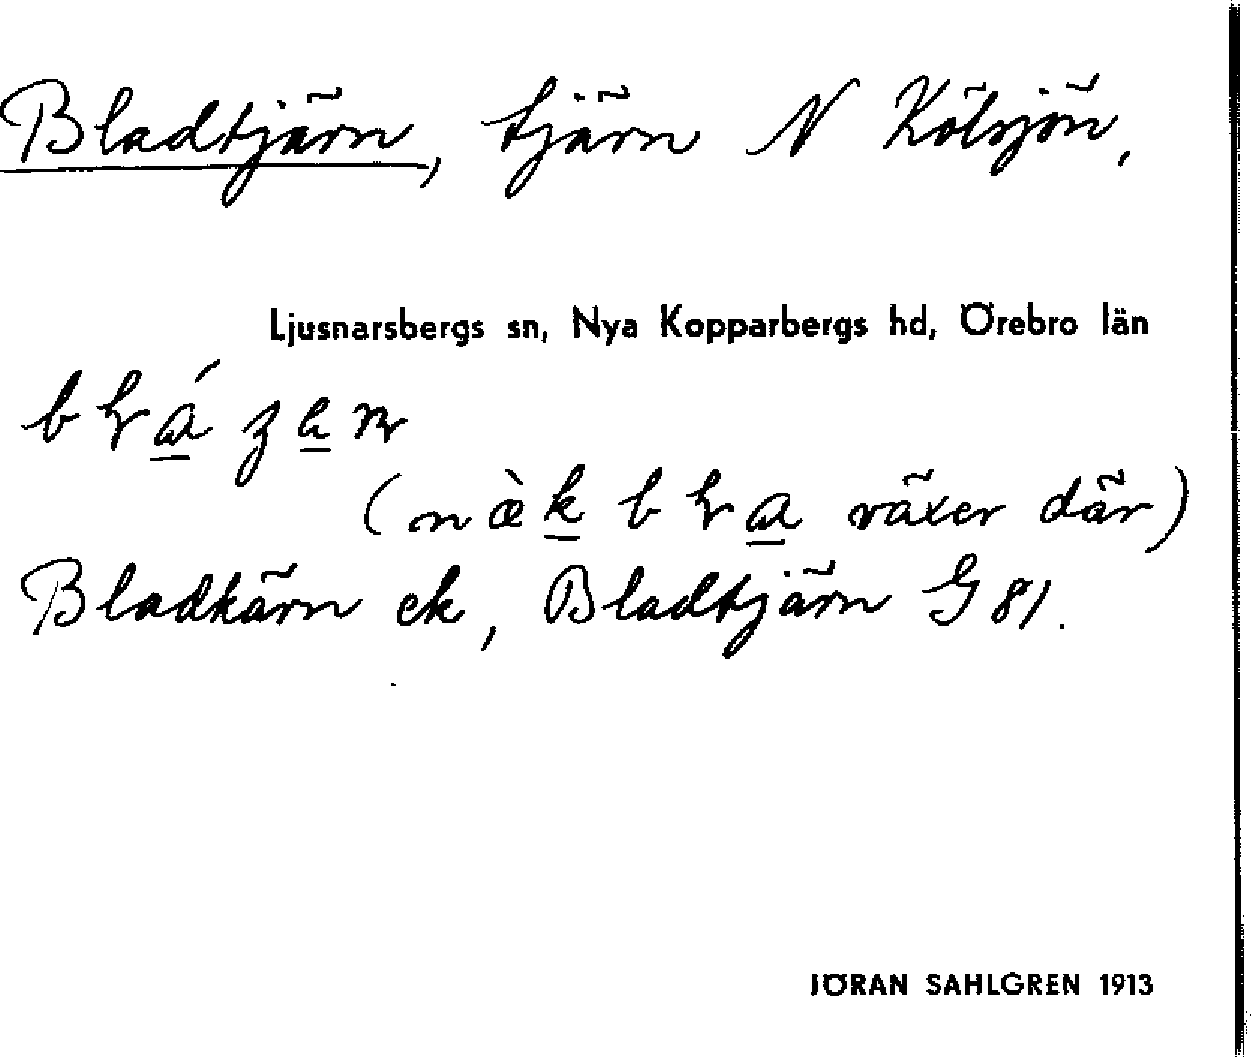 Bladtjärn, tjärn N Kölsjön,
Ljusnarsbergs sn, Nya Kopparbergs hd, Örebro län
växer där)
Bladkärn ek, Bladtjärn G 81.
JÖRAN SAHLGREN 1913